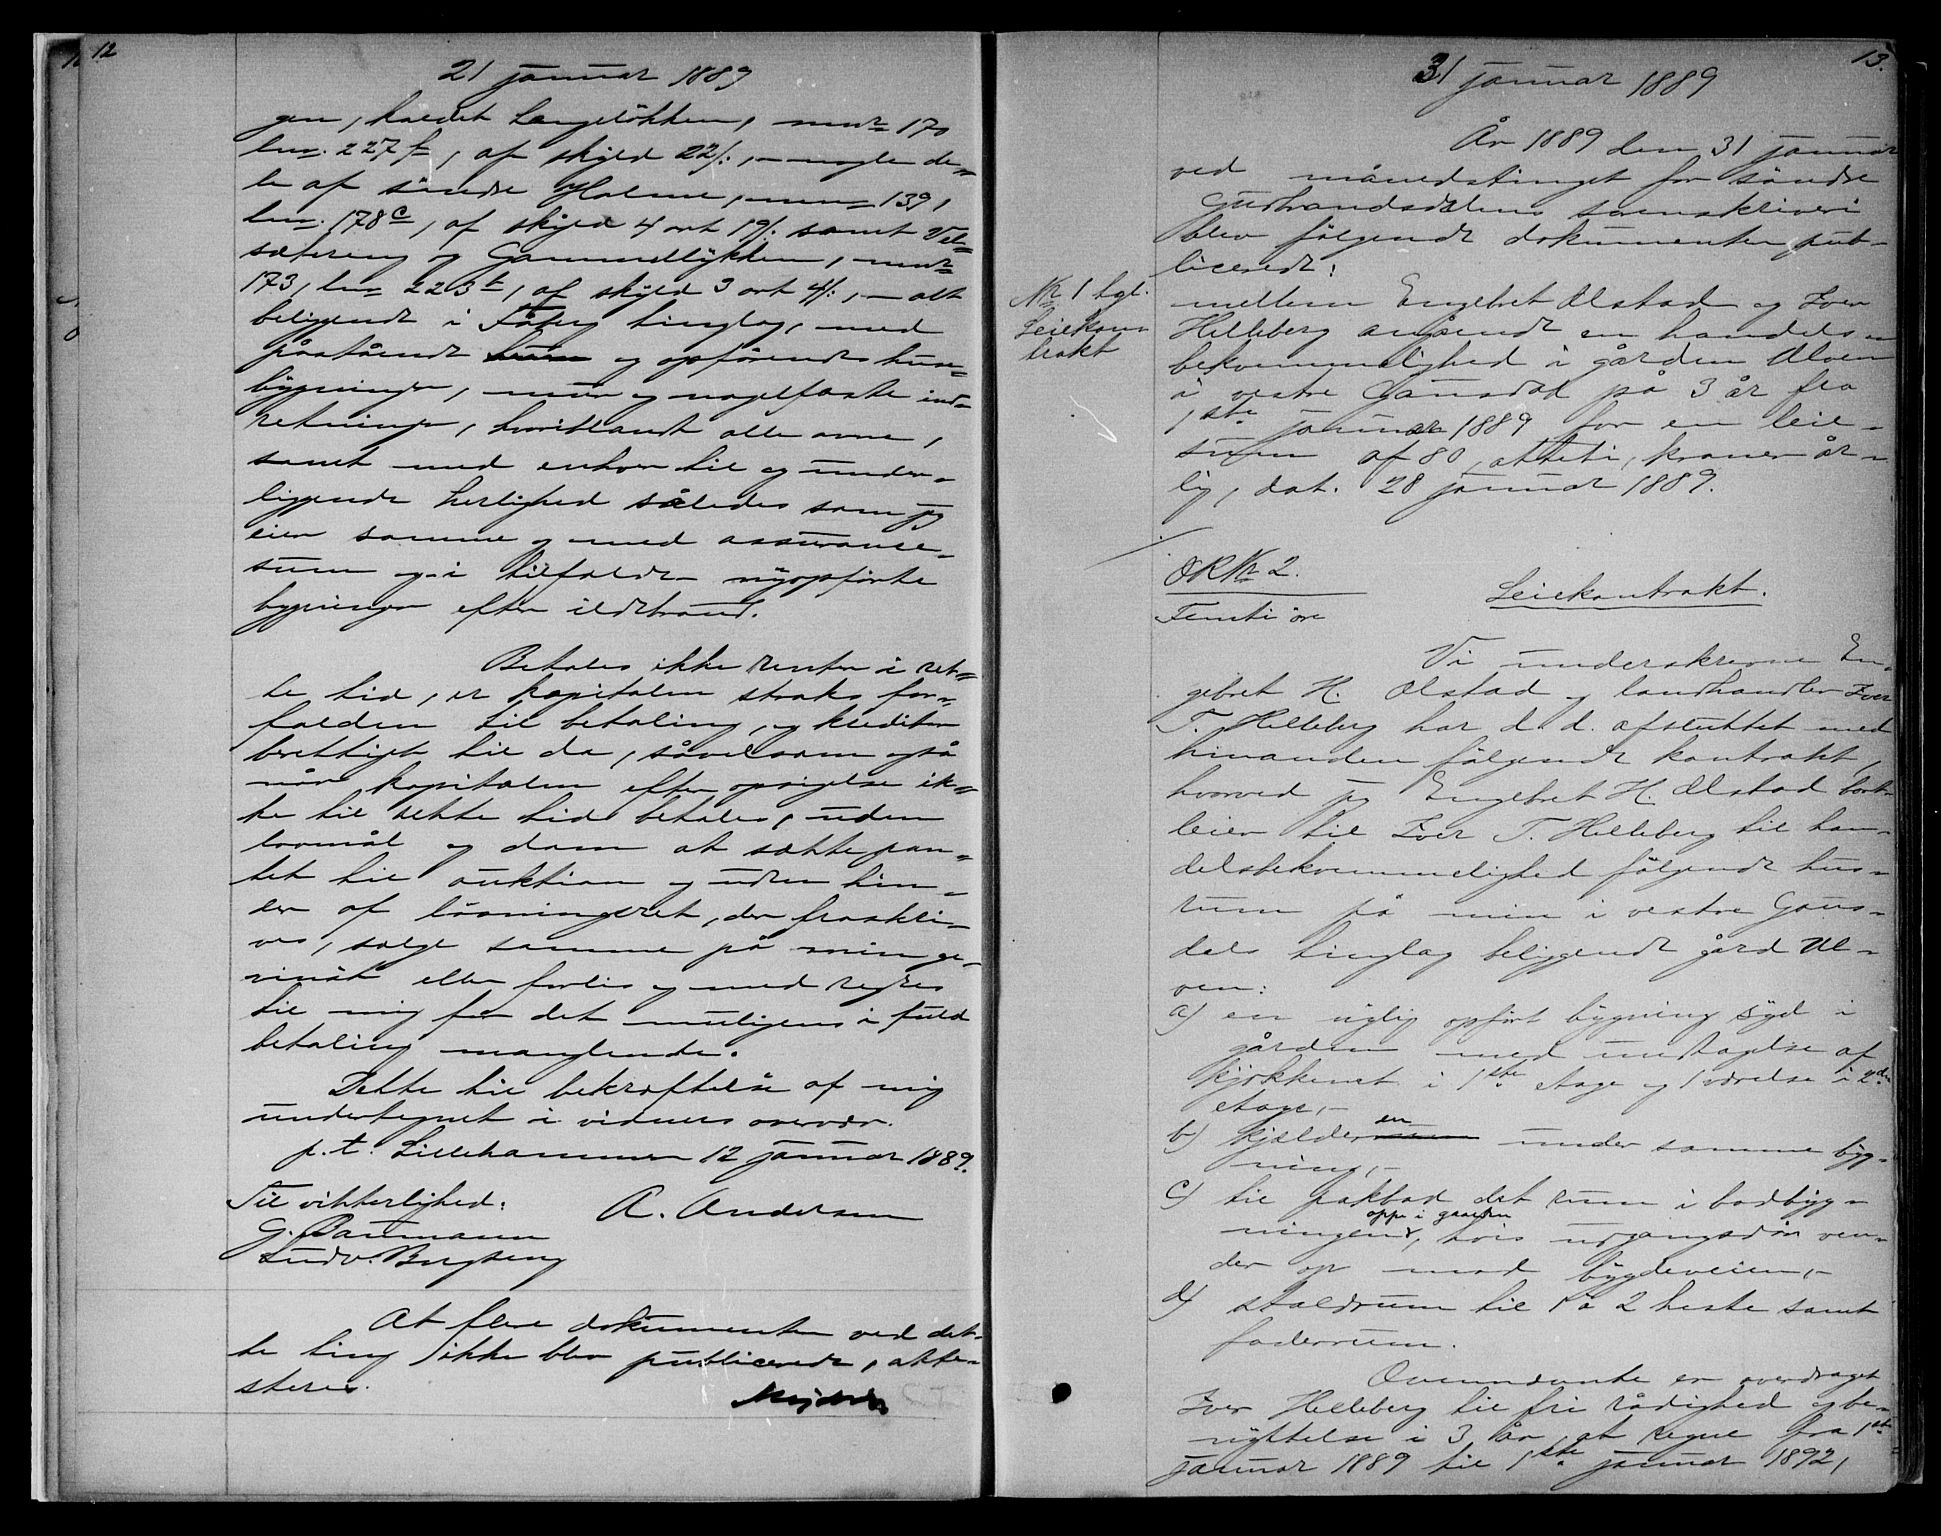 12
21 januar 1889
gen, kaldet Langeløkken, mnr 170
lnr. 227 f, af skyld 22 s:, – nogle de-
le af søndre Holme, mnr 139,
lnr. 178 c, af skyld 4 ort 19 s: samt Vel-
sætereng og Gammellykken, mnr
173, lnr 223 t, af skyld 3 ort 4 s:, – alt
beliggende i Fåberg tinglag, med
påstående og opførendes huse-
bygninger, mur og nagelfaste ind-
retninger, hvoriblandt alle ovne,
samt med enhver til og under-
liggende herlighed således som jeg
eier samme og med assurance-
sum og i tilfælde nyopførte
bygninger efter ildsbrand.
Betales ikke renter i ret-
te tid, er kapitalen straks for-
falden til betaling, og kreditor
berettiget til da, såvelsom også
når kapitalen efter opsigelse ik-
ke til rette tid betales, uden
lovmål og dom at sætte pan-
tet til auktion og uden hin-
der af løsningsret, der fraskri-
ves, sælge samme på min ge-
vinst eller forlis og med regres
til mig for det muligens i fuld
betaling manglende.
Dette til bekræftelse af mig
undertegnet i vidners overvær.
p. t. Lillehammer 12 januar 1889.
Til vitterlighed: A. Andersen
G. Baumann
Ludv. Bugberg
At flere dokumenter ved det-
te ting ikke blev publicerede, atte-
steres.
13.
31 januar 1889
År 1889 den 31 januar
ved månedstinget for søndre
Gudbrandsdalens sorenskriveri
blev følgende dokumenter pub-
liceret:
Nr 1 tgl.
Leiekon-
trakt
mellem Engebret Ulstad og Iver
Helleberg angående en handels-
bekvemmelighed i gården Ulven
i vestre Gausdal på 3 år fra
1ste januar 1889 for en leie-
sum af 80, otteti, kroner år-
lig, dat. 28 januar 1889.
ORK Nr 2.
Femti øre
Leiekontrakt.
Vi underskrevne En-
gebret H. Ulstad og landhandler Iver
T. Helleberg har d. d. afsluttet med
hinanden følgende kontrakt,
hvorved jeg Engebret H. Ulstad bort-
leier til Iver T. Helleberg til han-
delsbekvemmelighed følgende hus-
rum på min i vestre Gaus-
dals tinglag beliggende gård Ul-
ven:
a) en nylig opført bygning syd i
gården med undtagelse af
kjøkkenet i 1ste etage og 1 værelse i 2den
etage, –
b) kjelderen under samme byg-
ning, –
c) til pakbod det rum i bodbyg-
ningen oppe i gaarden, hvis udgangsdør ven-
der op mod bygdeveien, –
d) staldrum til 1 a 2 heste samt
foderrum.
Ovennævnte er overdraget
Iver Helleberg til fri rådighed og be-
nyttelse i 3 år, at regne fra 1ste
januar 1889 til 1ste januar 1892,